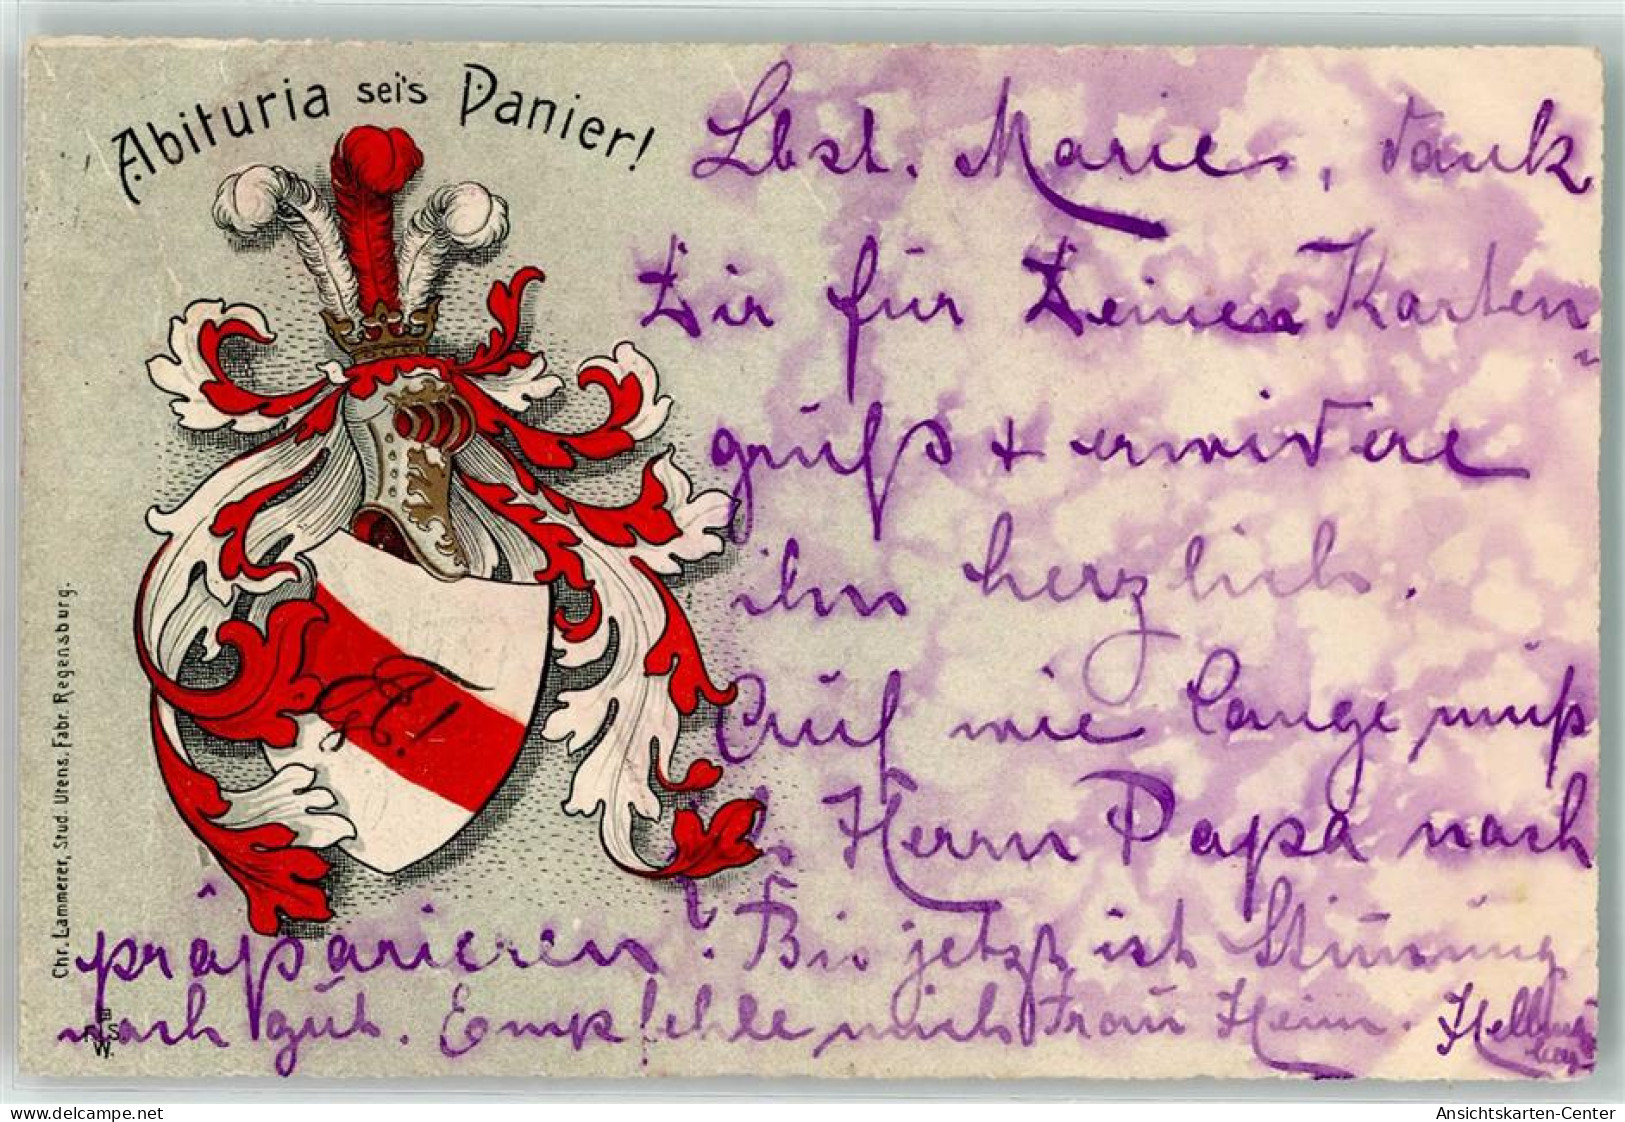 Abituria sei's Panier!
Lbst. Marie, dank
Dir für Deinen Karten
gruß + erwidere
ihn herzlich.
Auf wie lange muß
ich Herrn Papa noch
präparieren? Bis jetzt ist Stimmung
noch gut. Empfehle mich Frau Heim.
A!
Chr. Lammerer, Stud. Utens. Fabr. Regensburg.
delcampe.net
Ansichtskarten-Center